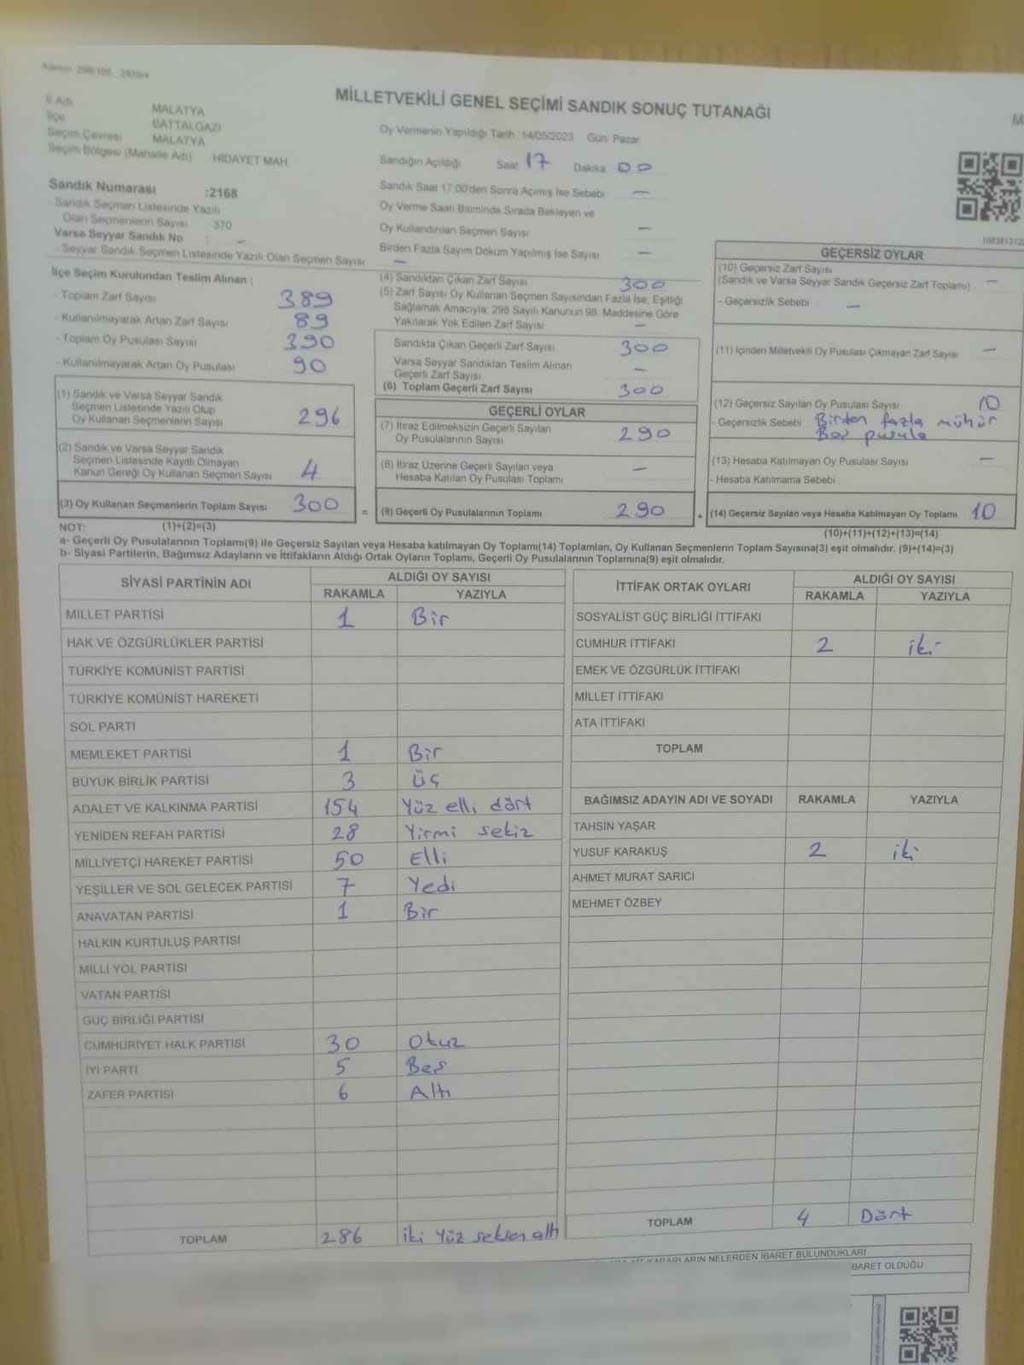 MİLLETVEKİLİ GENEL SEÇİMİ SANDIK SONUÇ TUTANAĞI
İl Adı MALATYA
İlçe BATTALGAZİ
Seçim Çevresi MALATYA
Seçim Bölgesi (Mahalle Adı) HİDAYET MAH.
Sandık Numarası :2168
Sandık Seçmen Listesinde Yazılı
Olan Seçmenlerin Sayısı 370
Varsa Seyyar Sandık No : –
- Seyyar Sandık Seçmen Listesinde Yazılı Olan Seçmen Sayısı –
Oy Vermenin Yapıldığı Tarih 14/05/2023 Gün Pazar
Sandığın Açıldığı Saat 17 Dakika 00
Sandık Saat 17.00'den Sonra Açılmış İse Sebebi –
Oy Verme Saati Bitiminde Sırada Bekleyen ve
Oy Kullandırılan Seçmen Sayısı –
Birden Fazla Sayım Döküm Yapılmış İse Sayısı –
İlçe Seçim Kurulundan Teslim Alınan :
- Toplam Zarf Sayısı 389
- Kullanılmayarak Artan Zarf Sayısı 89
- Toplam Oy Pusulası Sayısı 390
- Kullanılmayarak Artan Oy Pusulası 90
(1) Sandık ve Varsa Seyyar Sandık
Seçmen Listesinde Yazılı Olup
Oy Kullanan Seçmenlerin Sayısı 296
(2) Sandık ve Varsa Seyyar Sandık
Seçmen Listesinde Kayıtlı Olmayan
Kanun Gereği Oy Kullanan Seçmen Sayısı 4
(3) Oy Kullanan Seçmenlerin Toplam Sayısı 300
(4) Sandıktan Çıkan Zarf Sayısı 300
(5) Zarf Sayısı Oy Kullanan Seçmen Sayısından Fazla İse, Eşitliği
Sağlamak Amacıyla; 298 Sayılı Kanunun 98. Maddesine Göre
Yakılarak Yok Edilen Zarf Sayısı –
Sandıkta Çıkan Geçerli Zarf Sayısı 300
Varsa Seyyar Sandıktan Teslim Alınan
Geçerli Zarf Sayısı –
(6) Toplam Geçerli Zarf Sayısı 300
GEÇERLİ OYLAR
(7) İtiraz Edilmeksizin Geçerli Sayılan
Oy Pusulalarının Sayısı 290
(8) İtiraz Üzerine Geçerli Sayılan veya
Hesaba Katılan Oy Pusulası Toplamı –
= (9) Geçerli Oy Pusulalarının Toplamı 290
GEÇERSİZ OYLAR
(10) Geçersiz Zarf Sayısı
(Sandık ve Varsa Seyyar Sandık Geçersiz Zarf Toplamı) –
- Geçersizlik Sebebi –
(11) İçinden Milletvekili Oy Pusulası Çıkmayan Zarf Sayısı –
(12) Geçersiz Sayılan Oy Pusulası Sayısı 10
- Geçersizlik Sebebi Birden fazla mühür
Boş pusula
(13) Hesaba Katılmayan Oy Pusulası Sayısı –
- Hesaba Katılmama Sebebi
+ (14) Geçersiz Sayılan veya Hesaba Katılmayan Oy Toplamı 10
NOT: (1)+(2)=(3) (10)+(11)+(12)+(13)=(14)
a- Geçerli Oy Pusulalarının Toplamı(9) ile Geçersiz Sayılan veya Hesaba katılmayan Oy Toplamı(14) Toplamları, Oy Kullanan Seçmenlerin Toplam Sayısına(3) eşit olmalıdır. (9)+(14)=(3)
b- Siyasi Partilerin, Bağımsız Adayların ve İttifakların Aldığı Ortak Oyların Toplamı, Geçerli Oy Pusulalarının Toplamına(9) eşit olmalıdır.
SİYASİ PARTİNİN ADI ALDIĞI OY SAYISI
RAKAMLA YAZIYLA
MİLLET PARTİSİ 1 Bir
HAK VE ÖZGÜRLÜKLER PARTİSİ
TÜRKİYE KOMÜNİST PARTİSİ
TÜRKİYE KOMÜNİST HAREKETİ
SOL PARTİ
MEMLEKET PARTİSİ 1 Bir
BÜYÜK BİRLİK PARTİSİ 3 üç
ADALET VE KALKINMA PARTİSİ 154 Yüz elli dört
YENİDEN REFAH PARTİSİ 28 Yirmi sekiz
MİLLİYETÇİ HAREKET PARTİSİ 50 Elli
YEŞİLLER VE SOL GELECEK PARTİSİ 7 Yedi
ANAVATAN PARTİSİ 1 Bir
HALKIN KURTULUŞ PARTİSİ
MİLLİ YOL PARTİSİ
VATAN PARTİSİ
GÜÇ BİRLİĞİ PARTİSİ
CUMHURİYET HALK PARTİSİ 30 Otuz
İYİ PARTİ 5 Beş
ZAFER PARTİSİ 6 Altı
TOPLAM 286 iki Yüz seksen altı
İTTİFAK ORTAK OYLARI ALDIĞI OY SAYISI
RAKAMLA YAZIYLA
SOSYALİST GÜÇ BİRLİĞİ İTTİFAKI
CUMHUR İTTİFAKI 2 iki
EMEK VE ÖZGÜRLÜK İTTİFAKI
MİLLET İTTİFAKI
ATA İTTİFAKI
TOPLAM
BAĞIMSIZ ADAYIN ADI VE SOYADI RAKAMLA YAZIYLA
TAHSİN YAŞAR
YUSUF KARAKUŞ 2 iki
AHMET MURAT SARICI
MEHMET ÖZBEY
TOPLAM 4 Dört
KARARLARIN NELERDEN İBARET BULUNDUKLARI
İBARET OLDUĞU